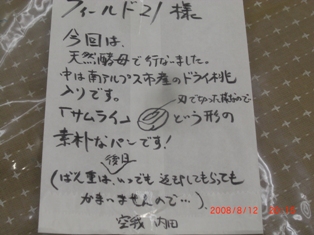 フィールド21 様
今回は、
天然酵母で行ないました。
中は南アルプス市産のドライ桃
入りです。
刃で切った様なので
「サムライ」 という形の
素朴なパンです!
後日
(ばん重は、いつでも 返してもらっても
かまいませんので…)。
空我 内田
2008/8/12